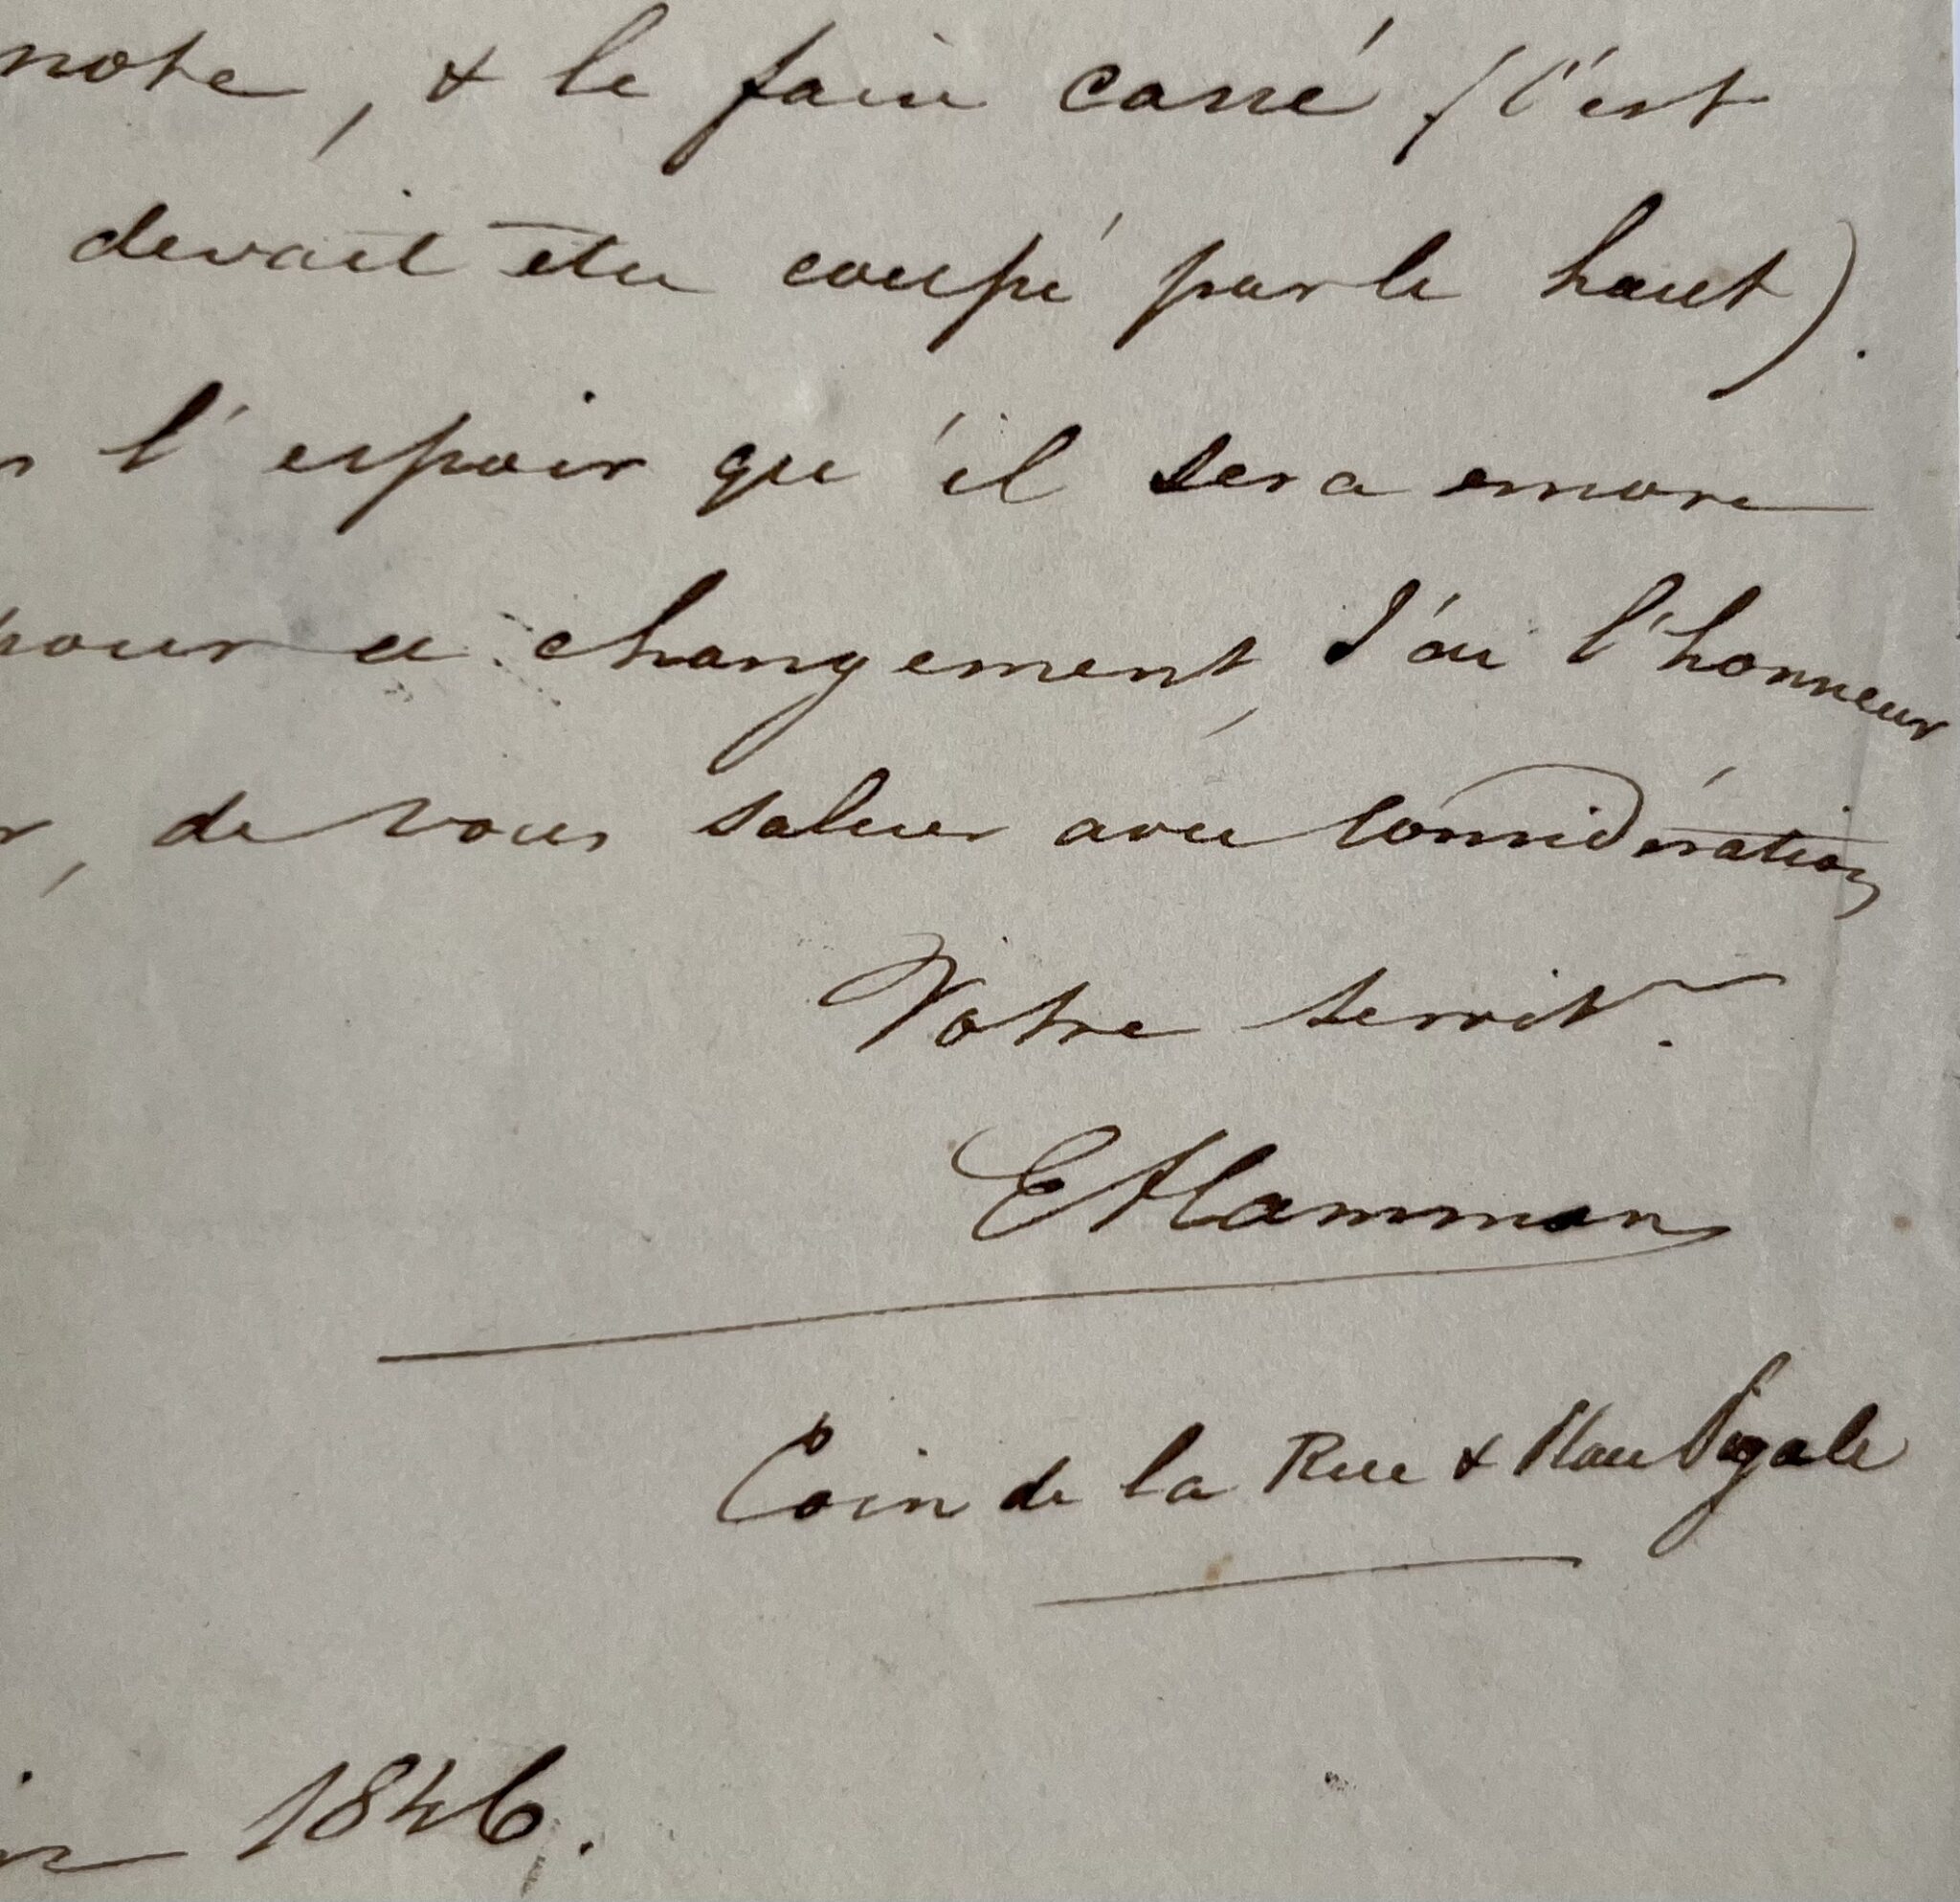 note, & le faire carré (c'est
devait être coupé par le haut).
l'espoir qu'il sera encore
pour ce changement, J'ai l'honneur
, de vous saluer avec Considération
Votre servit<sup>r</sup>.
EHamman
Coin de la Rue & Place Pigale
1846.